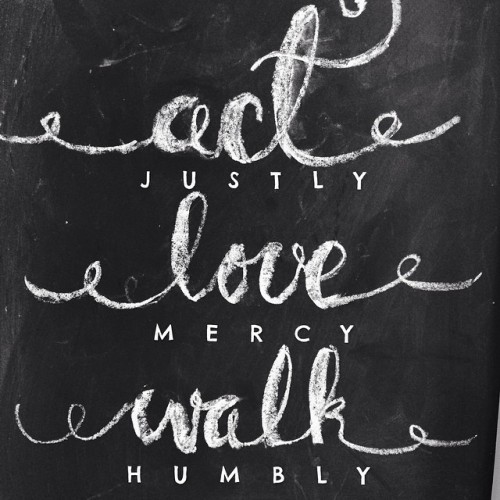 act
JUSTLY
love
MERCY
walk
HUMBLY